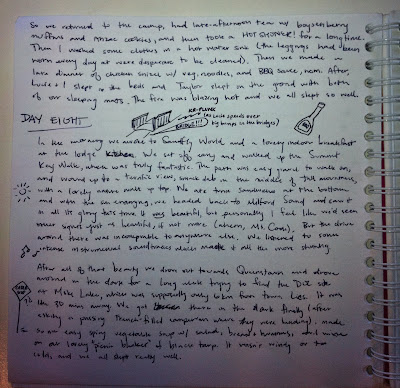 So we returned to the camp, had late-afternoon tea w/ boysenberry
muffins and Anzac cookies, and then took a HOT SHOWER! for a long time.
Then I washed some clothes in a hot water sink (the leggings had been
worn every day at were desperate to be cleaned). Then we made a
late dinner of chicken snitzel w/ veg, noodles, and BBQ sauce, nom. After,
I slept in the beds and Taylor slept on the ground with both
of our sleeping mats. The fire was blazing hot and we all slept so well.
KER-PLUNK
(as quite spends over
big bumps in the bridges)
BRIDGE!!!
DAY EIGHT
In the morning we awoke to World and a lovely indoor breakfast
at the lodge We set off early and walked up the Summit
Key Walk, which was truly fantastic. The path was very grand to walk on,
and wound up to a terrific view, smack dab in the middle of TALL mountains,
with a lovely at top. We ate tuna sandwiches at the bottom
and with the sun emerging, we headed back to Milford Sound and saw it
in all its glory this time. It was beautiful, but personally I feel like we'd seen
other sights just as beautiful, if not more (ahem, Mt. Cook). But the drive
around there was incomparable to anywhere else, and I listened to some
intense instrumental soundtracks which made it all the more stunning.
After all of that beauty we drove out towards Queenstown and drove
around in the dark for a long while trying to find the DOC site
at Moke Lake, which was supposedly only 10km from town. Lies. It was
like 30 min away. We got there in the dark finally (after
asking a passing French-filled campervan where they were heading), made
an easy spicy vegetable soup w/ salad, bread & hummus, and wine
on our lovely "picnic blanket" of black tarp. It wasn't windy or too
cold, and we all slept really well.